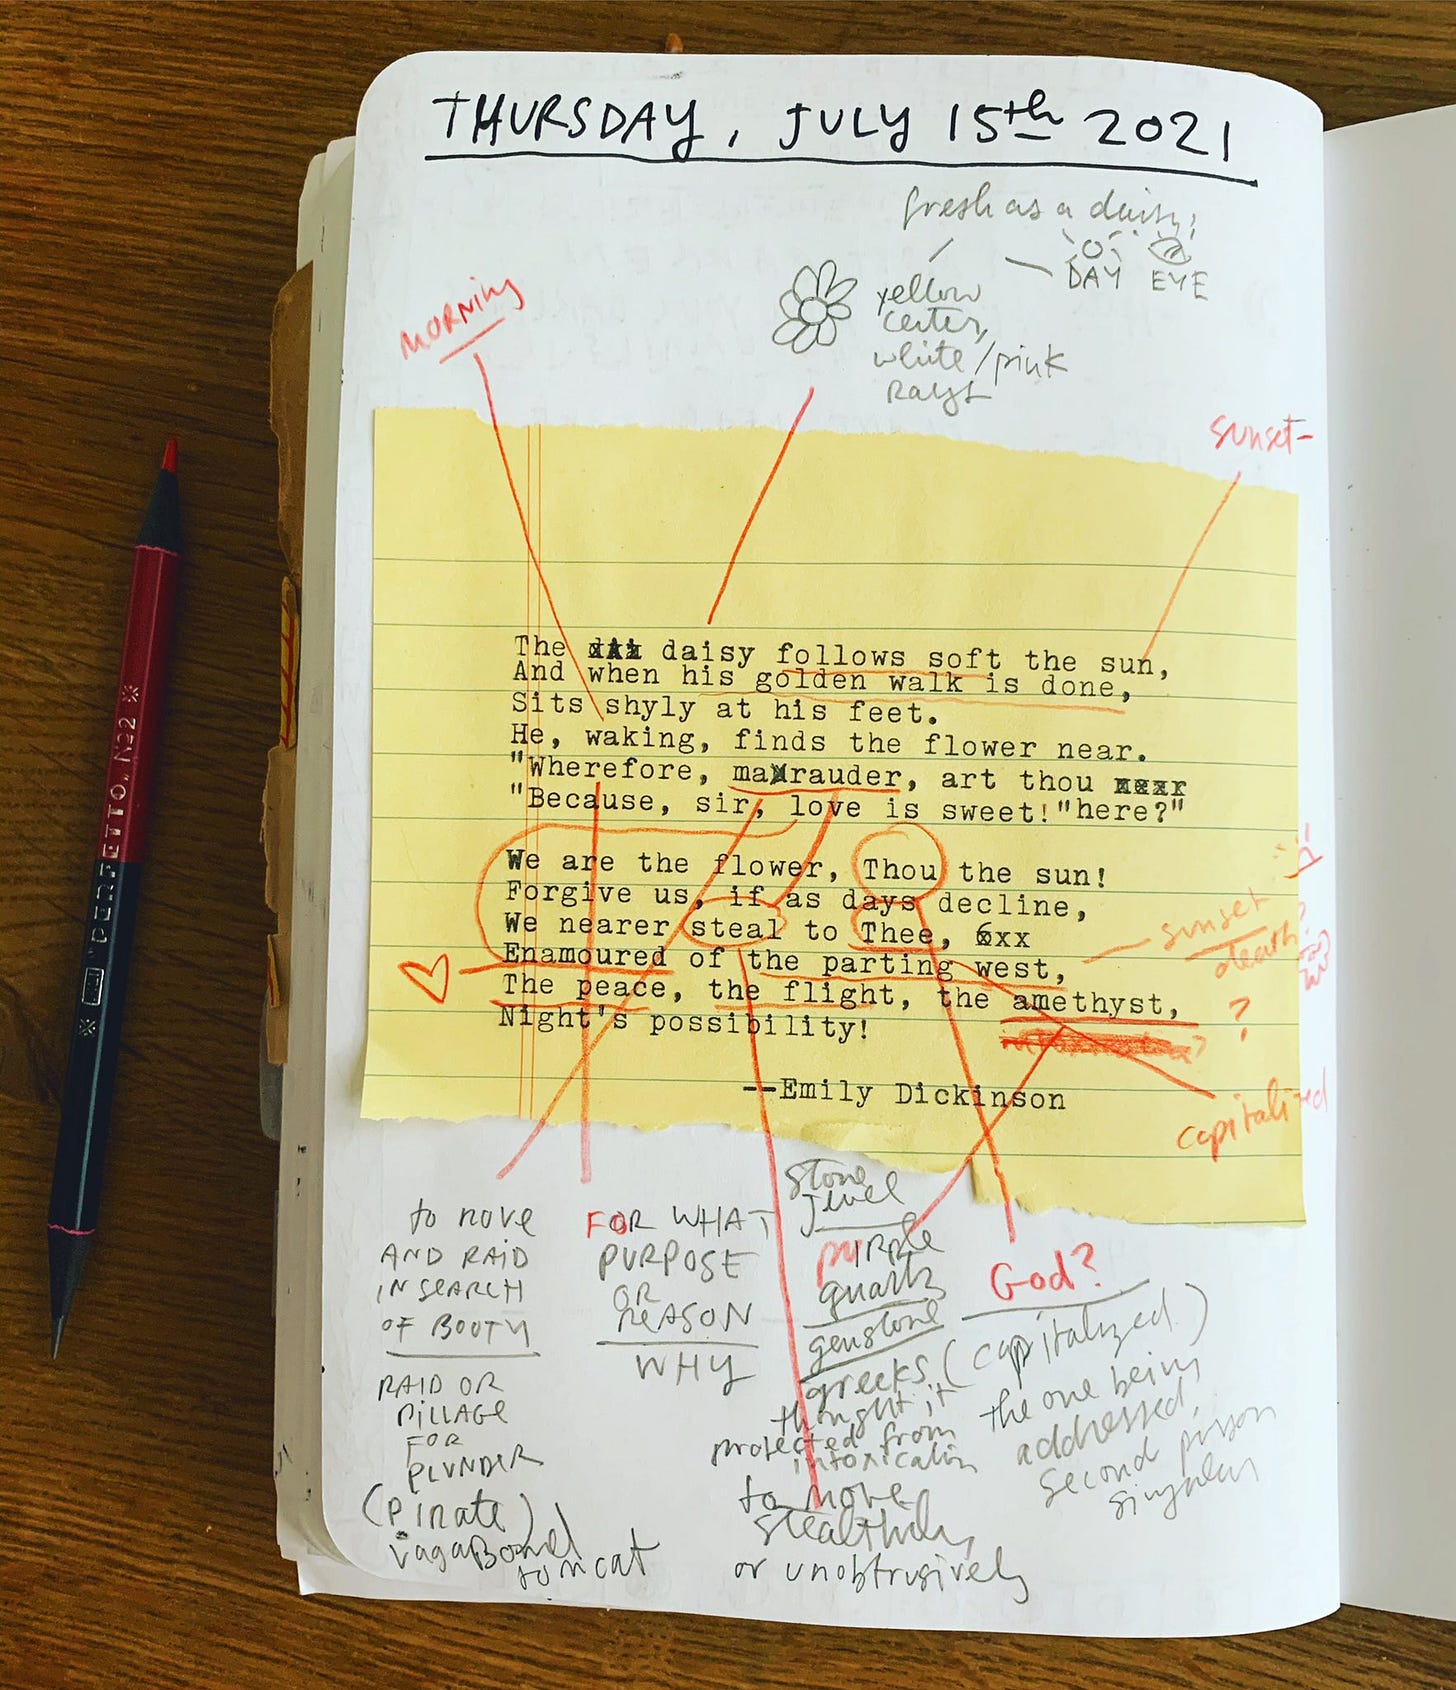 THURSDAY, JULY 15th 2021
fresh as a daisy,
DAY EYE
yellow
center,
white/pink
rays
MORNING
sunset-
The daisy follows soft the sun,
And when his golden walk is done,
Sits shyly at his feet.
He, waking, finds the flower near.
"Wherefore, marauder, art thou
"Because, sir, love is sweet!"here?"
We are the flower, Thou the sun!
Forgive us, if as days decline,
We nearer steal to Thee, 6xx
Enamoured of the parting west,
The peace, the flight, the amethyst,
Night's possibility!
--Emily Dickinson
sunset
death?
?
capitalized
to move
AND RAID
IN SEARCH
OF BOOTY
RAID OR
PILLAGE
FOR
PLUNDER
(PIRATE)
VAGABOND
TOMCAT
FOR WHAT
PURPOSE
OR
REASON
WHY
stone
Jewel
PURPLE
quartz
gemstone
greeks
thought it
protected from
intoxication
to move
stealthily,
or unobtrusively
God?
(capitalized)
the one being
addressed,
second person
singular
DERFETTO, No2